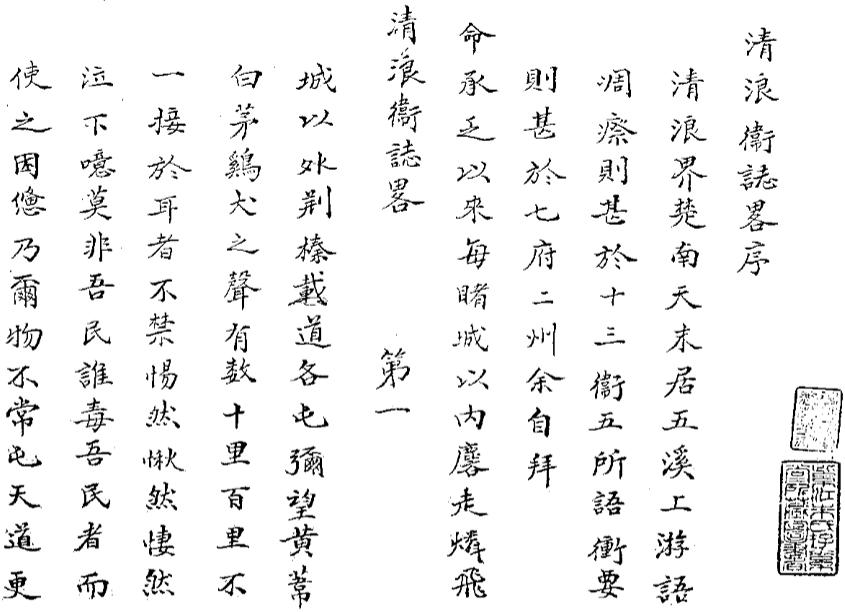 清浪衞誌畧序
清浪界楚南天末居五溪上游語
凋瘵則甚於十三衞五所語衝要
則甚於七府二州余自拜
命承乏以來每睹城以内麏走燐飛
清浪衞誌畧　第一
城以外荆榛載道各屯彌望黄蓇
白茅鷄犬之聲有数十里百里不
一接於耳者不禁惕然愀然悽然
泣下噫莫非吾民誰毒吾民者而
使之困憊乃爾物不常屯天道更